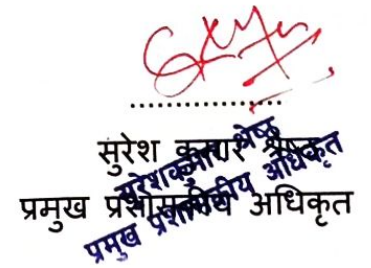 ....................
सुरेश कुमार श्रेष्ठ
प्रमुख प्रशासकीय अधिकृत
सुरेशकुमार श्रेष्ठ
प्रमुख प्रशासकीय अधिकृत